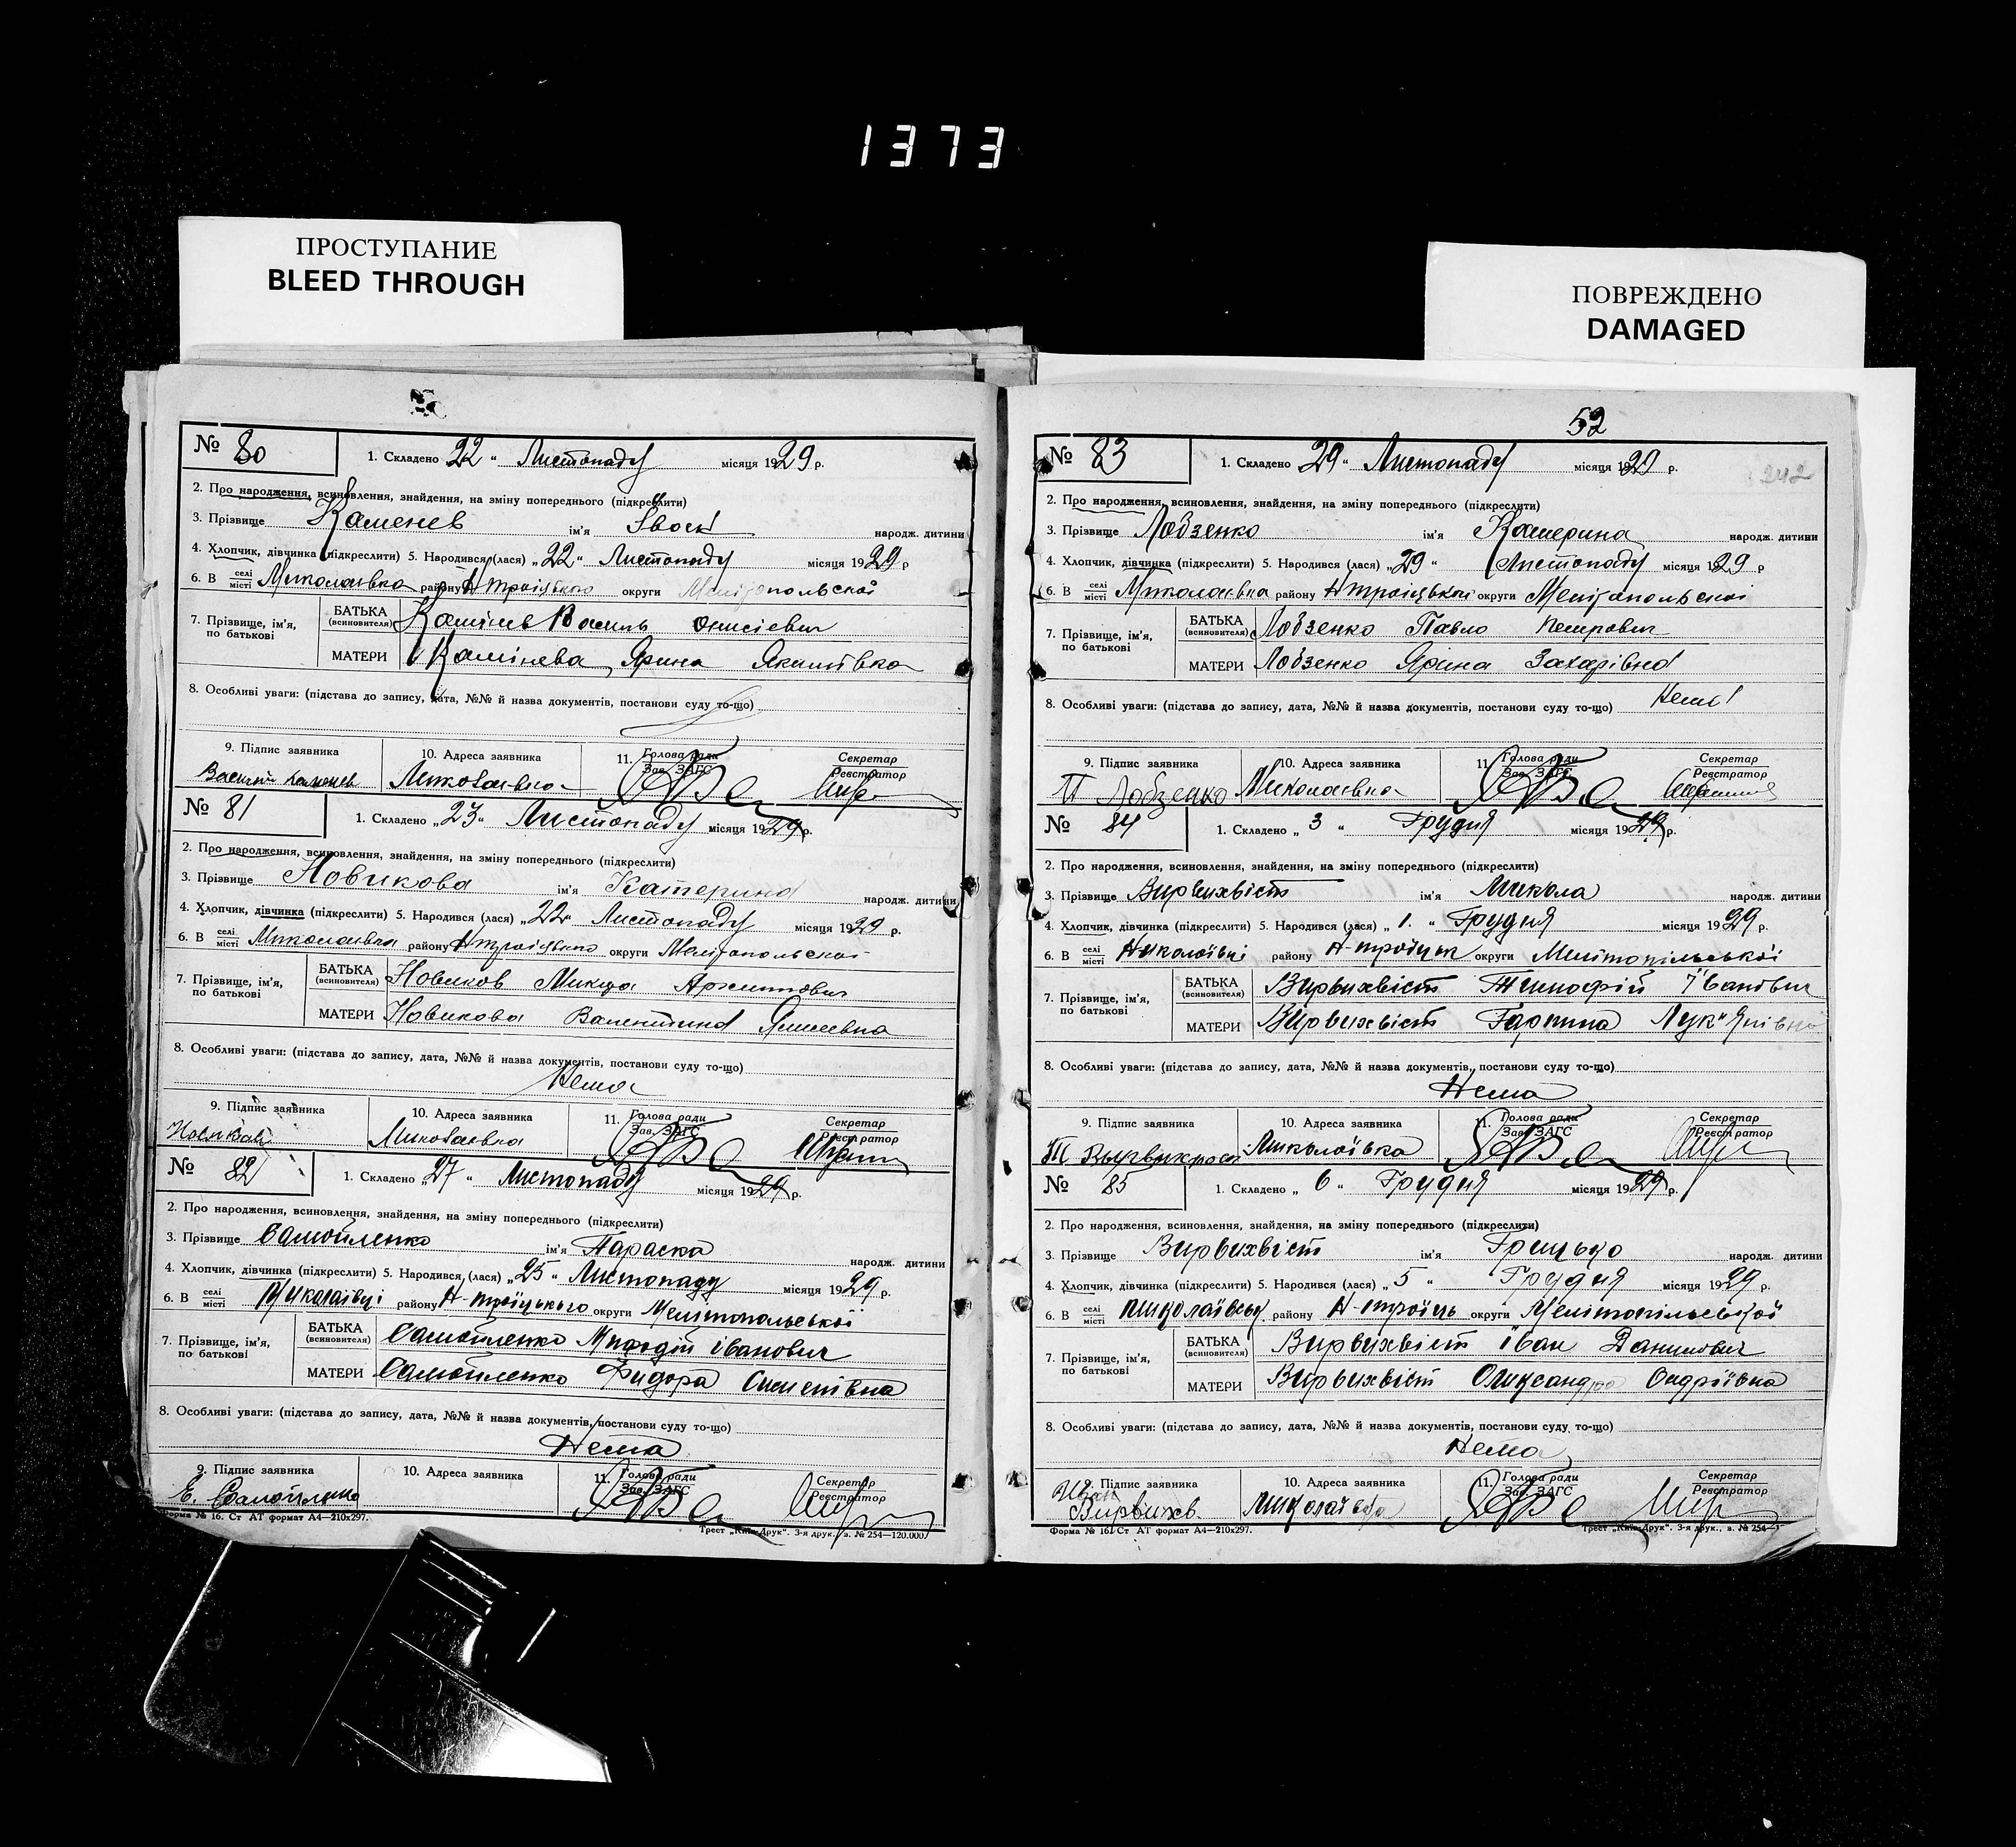 1373
ПРОСТУПАНИЕ
BLEED THROUGH
ПОВРЕЖДЕНО
DAMAGED
№ 80 1. Складено „22“ Листопаду місяця 1929 р.
2. Про народження, всиновлення, знайдення, на зміну попереднього (підкреслити)
3. Прізвище Каменев ім'я народж. дитини
4. Хлопчик, дівчинка (підкреслити) 5. Народився (лася) „22“ Листопаду місяця 1929 р
6. В селі місті Миколаївка району Нтроіцького округи Мелітопольскоі
7. Прізвище, ім'я, по батькові БАТЬКА (всиновителя) Камінев Василь Онисіевич
МАТЕРИ Камінева Ярина Якимівна
8. Особливі уваги: (підстава до запису, дата, №№ й назва документів, постанови суду то-що)
9. Підпис заявника 10. Адреса заявника 11. Голова ради Зав. ЗАГС Секретар Реєстратор
Василий Каменев Миколаївка
№ 81 1. Складено „23“ Листопаду місяця 1929 р.
2. Про народження, всиновлення, знайдення, на зміну попереднього (підкреслити)
3. Прізвище Новикова ім'я Катерина народж. дитини
4. Хлопчик, дівчинка (підкреслити) 5. Народився (лася) „22“ Листопаду місяця 1929 р.
6. В селі місті Миколаівка району Нтроіцького округи Мелітопольскоі
7. Прізвище, ім'я, по батькові БАТЬКА (всиновителя) Новиков Микита
МАТЕРИ Новикова Валентина
8. Особливі уваги: (підстава до запису, дата, №№ й назва документів, постанови суду то-що)
Нема
9. Підпис заявника 10. Адреса заявника 11. Голова ради Зав. ЗАГС Секретар Реєстратор
Миколаівка
№ 82 1. Складено „27“ Листопаду місяця 1929 р.
2. Про народження, всиновлення, знайдення, на зміну попереднього (підкреслити)
3. Прізвище Самойленко ім'я Параска народж. дитини
4. Хлопчик, дівчинка (підкреслити) 5. Народився (лася) „25“ Листопаду місяця 1929 р.
6. В селі місті Миколаівці району Н-троїцького округи Мелітопольської
7. Прізвище, ім'я, по батькові БАТЬКА (всиновителя) Самойленко Мифодій Іванович
МАТЕРИ Самойленко Фидора Сименівна
8. Особливі уваги: (підстава до запису, дата, №№ й назва документів, постанови суду то-що)
Нема
9. Підпис заявника 10. Адреса заявника 11. Голова ради Зав. ЗАГС Секретар Реєстратор
Е. Самойленко
Форма № 16. Ст АТ формат А4—210х297. Трест „Київ-Друк“. 3-я друк., з. № 254—120.000
52
242
№ 83 1. Складено „29“ Листопаду місяця 1929 р.
2. Про народження, всиновлення, знайдення, на зміну попереднього (підкреслити)
3. Прізвище Лобзенко ім'я Катерина народж. дитини
4. Хлопчик, дівчинка (підкреслити) 5. Народився (лася) „29“ Листопаду місяця 1929 р
6. В селі місті Миколаівка району Нтроіцькоі округи Мелітопольскоі
7. Прізвище, ім'я, по батькові БАТЬКА (всиновителя) Лобзенко Павло Петрович
МАТЕРИ Лобзенко Ярина Захарівна
8. Особливі уваги: (підстава до запису, дата, №№ й назва документів, постанови суду то-що) Нема
9. Підпис заявника 10. Адреса заявника 11. Голова ради Зав. ЗАГС Секретар Реєстратор
П Лобзенко Миколаівка
№ 84 1. Складено „3“ Грудня місяця 1929 р.
2. Про народження, всиновлення, знайдення, на зміну попереднього (підкреслити)
3. Прізвище Вирвихвіст ім'я Микола народж. дитини
4. Хлопчик, дівчинка (підкреслити) 5. Народився (лася) „1.“ Грудня місяця 1929 р.
6. В селі місті Николаївці району Н-троіцьк округи Мелітопільської
7. Прізвище, ім'я, по батькові БАТЬКА (всиновителя) Вирвихвіст Тимофій Іванович
МАТЕРИ Вирвихвіст Гарпина Лук"янівна
8. Особливі уваги: (підстава до запису, дата, №№ й назва документів, постанови суду то-що)
Нема
9. Підпис заявника 10. Адреса заявника 11. Голова ради Зав. ЗАГС Секретар Реєстратор
Т Миколаївка
№ 85 1. Складено „6“ Грудня місяця 1929 р.
2. Про народження, всиновлення, знайдення, на зміну попереднього (підкреслити)
3. Прізвище Вирвихвіст ім'я Грицько народж. дитини
4. Хлопчик, дівчинка (підкреслити) 5. Народився (лася) „5“ Грудня місяця 1929 р.
6. В селі місті району Н-троїць округи Мелітопільської
7. Прізвище, ім'я, по батькові БАТЬКА (всиновителя) Вирвихвіст Іван Данилович
МАТЕРИ Вирвихвіст Оликсандра Ондріївна
8. Особливі уваги: (підстава до запису, дата, №№ й назва документів, постанови суду то-що)
Нема
9. Підпис заявника 10. Адреса заявника 11. Голова ради Зав. ЗАГС Секретар Реєстратор
Вирвихв. Миколаівка
Форма № 16. Ст АТ формат А4—210х297. Трест „Київ-Друк“. 3-я друк., з. № 254—1